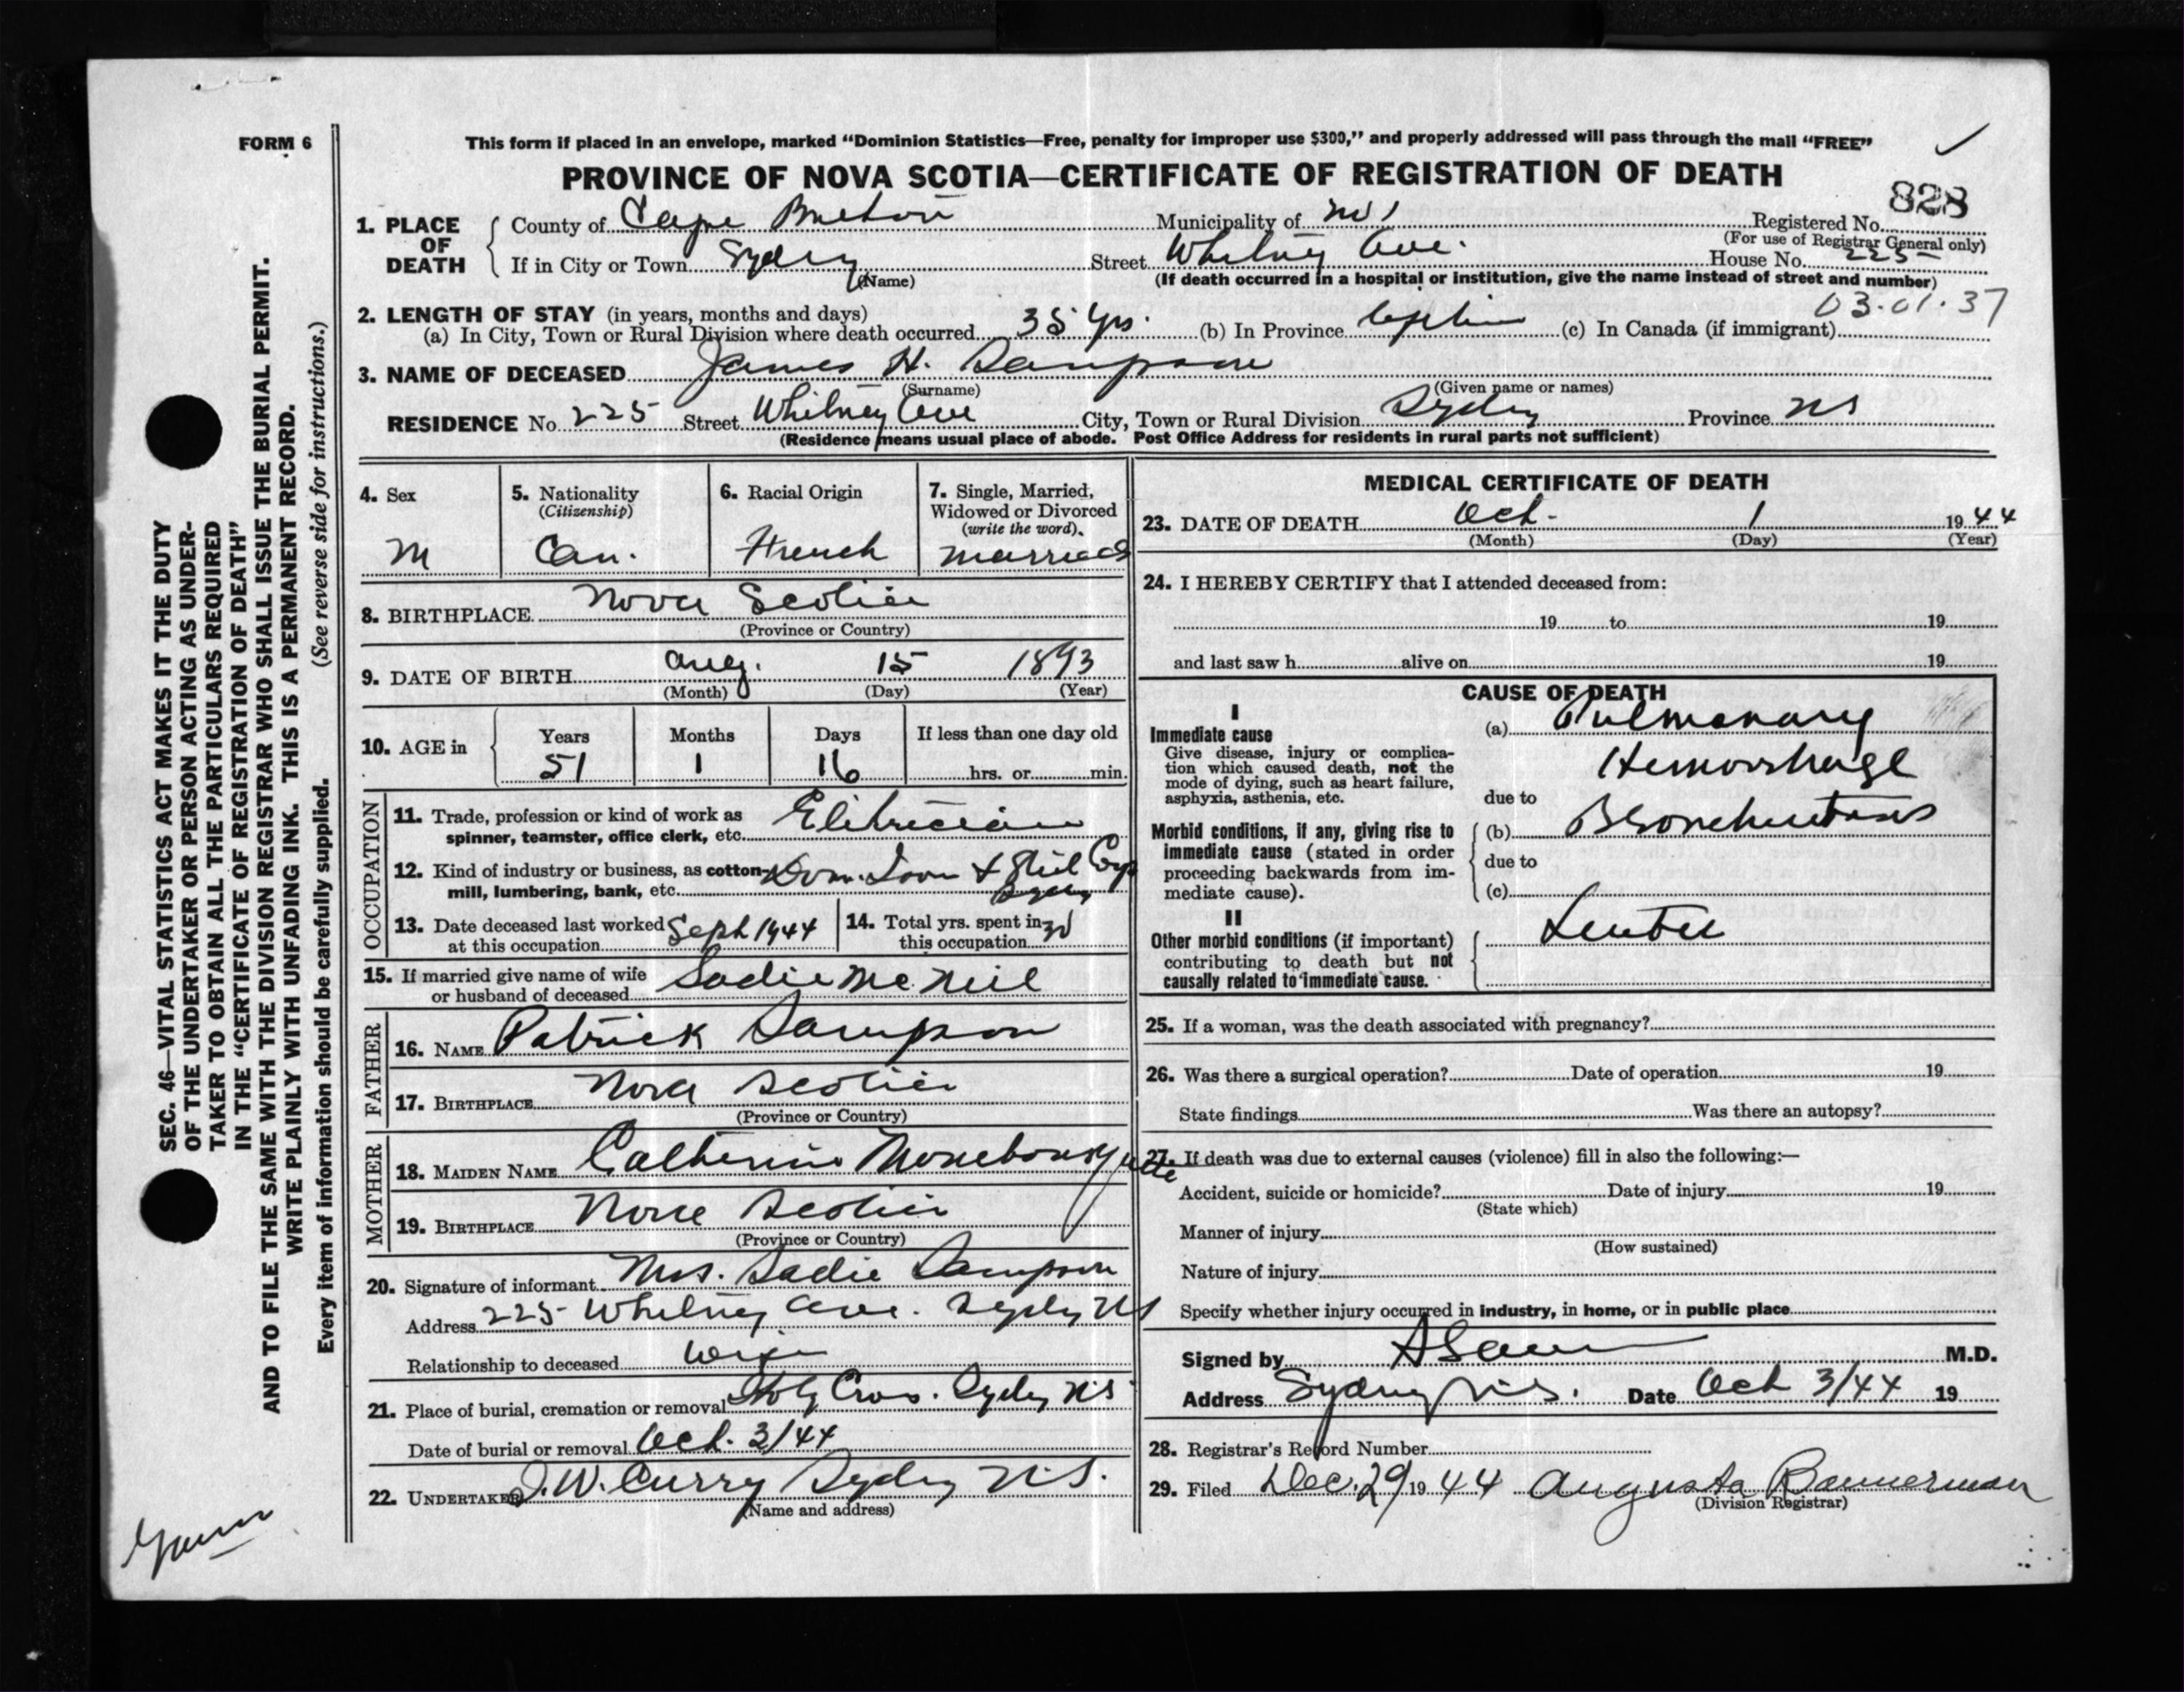 FORM 6
This form if placed in an envelope, marked “Dominion Statistics—Free, penalty for improper use $300,” and properly addressed will pass through the mail “FREE”
PROVINCE OF NOVA SCOTIA—CERTIFICATE OF REGISTRATION OF DEATH
828
1. PLACE OF DEATH
County of Cape Breton Municipality of Registered No.
(For use of Registrar General only)
If in City or Town Sydney Street Whitney Ave. House No. 225
(Name) (If death occurred in a hospital or institution, give the name instead of street and number)
03.01.37
2. LENGTH OF STAY (in years, months and days)
(a) In City, Town or Rural Division where death occurred 35 Yrs. (b) In Province (c) In Canada (if immigrant)
3. NAME OF DECEASED James H. Sampson
(Surname) (Given name or names)
RESIDENCE No. 225 Street Whitney Ave City, Town or Rural Division Sydney Province NS
(Residence means usual place of abode. Post Office Address for residents in rural parts not sufficient)
4. Sex
M
5. Nationality
(Citizenship)
Can.
6. Racial Origin
French
7. Single, Married,
Widowed or Divorced
(write the word).
married
8. BIRTHPLACE Nova Scotia
(Province or Country)
9. DATE OF BIRTH Aug. 15 1893
(Month) (Day) (Year)
10. AGE in
Years Months Days If less than one day old
51 1 16 hrs. or min.
OCCUPATION
11. Trade, profession or kind of work as
spinner, teamster, office clerk, etc. Elitrician
12. Kind of industry or business, as cotton-
mill, lumbering, bank, etc. Dom. Iron & Steel Corp
Sydney
13. Date deceased last worked
at this occupation Sept 1944
14. Total yrs. spent in
this occupation 30
15. If married give name of wife
or husband of deceased Sadie McNeil
FATHER
16. NAME Patrick Sampson
17. BIRTHPLACE Nova Scotia
(Province or Country)
MOTHER
18. MAIDEN NAME Catherine Monebourquette
19. BIRTHPLACE Nova Scotia
(Province or Country)
20. Signature of informant Mrs. Sadie Sampson
Address 225 Whitney Ave. Sydney NS
Relationship to deceased wife
21. Place of burial, cremation or removal Holy Cross. Sydney NS
Date of burial or removal Oct. 3/44
22. UNDERTAKER J.W. Curry Sydney N.S.
(Name and address)
MEDICAL CERTIFICATE OF DEATH
23. DATE OF DEATH Oct. 1 1944
(Month) (Day) (Year)
24. I HEREBY CERTIFY that I attended deceased from:
19 to 19
and last saw h alive on 19
CAUSE OF DEATH
I
Immediate cause
Give disease, injury or complica-
tion which caused death, not the
mode of dying, such as heart failure,
asphyxia, asthenia, etc.
(a) Pulmonary
Hemorrhage
due to
Morbid conditions, if any, giving rise to
immediate cause (stated in order
proceeding backwards from im-
mediate cause).
(b)
due to
(c)
II
Other morbid conditions (if important)
contributing to death but not
causally related to immediate cause.
25. If a woman, was the death associated with pregnancy?
26. Was there a surgical operation? Date of operation 19
State findings Was there an autopsy?
27. If death was due to external causes (violence) fill in also the following:—
Accident, suicide or homicide? Date of injury 19
(State which)
Manner of injury
(How sustained)
Nature of injury
Specify whether injury occurred in industry, in home, or in public place
Signed by M.D.
Address Sydney N.S. Date Oct 3/44 19
28. Registrar's Record Number
29. Filed Dec. 29 1944 Augusta Bannerman
(Division Registrar)
SEC. 46—VITAL STATISTICS ACT MAKES IT THE DUTY
OF THE UNDERTAKER OR PERSON ACTING AS UNDER-
TAKER TO OBTAIN ALL THE PARTICULARS REQUIRED
IN THE “CERTIFICATE OF REGISTRATION OF DEATH”
AND TO FILE THE SAME WITH THE DIVISION REGISTRAR WHO SHALL ISSUE THE BURIAL PERMIT.
WRITE PLAINLY WITH UNFADING INK. THIS IS A PERMANENT RECORD.
Every item of information should be carefully supplied. (See reverse side for instructions.)